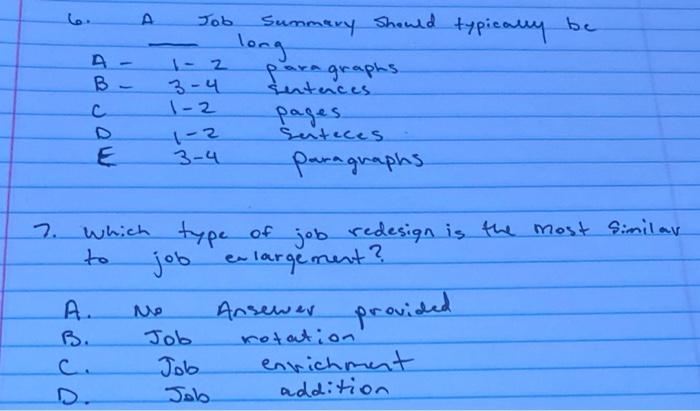 6. A Job Summary Should typically be
___ long
A - 1-2 paragraphs
B - 3-4 sentences
C 1-2 pages
D 1-2 Senteces
E 3-4 paragraphs
7. Which type of job redesign is the most Similar
to job enlargement?
A. No Ansewer provided
B. Job rotation
C. Job enrichment
D. Job addition